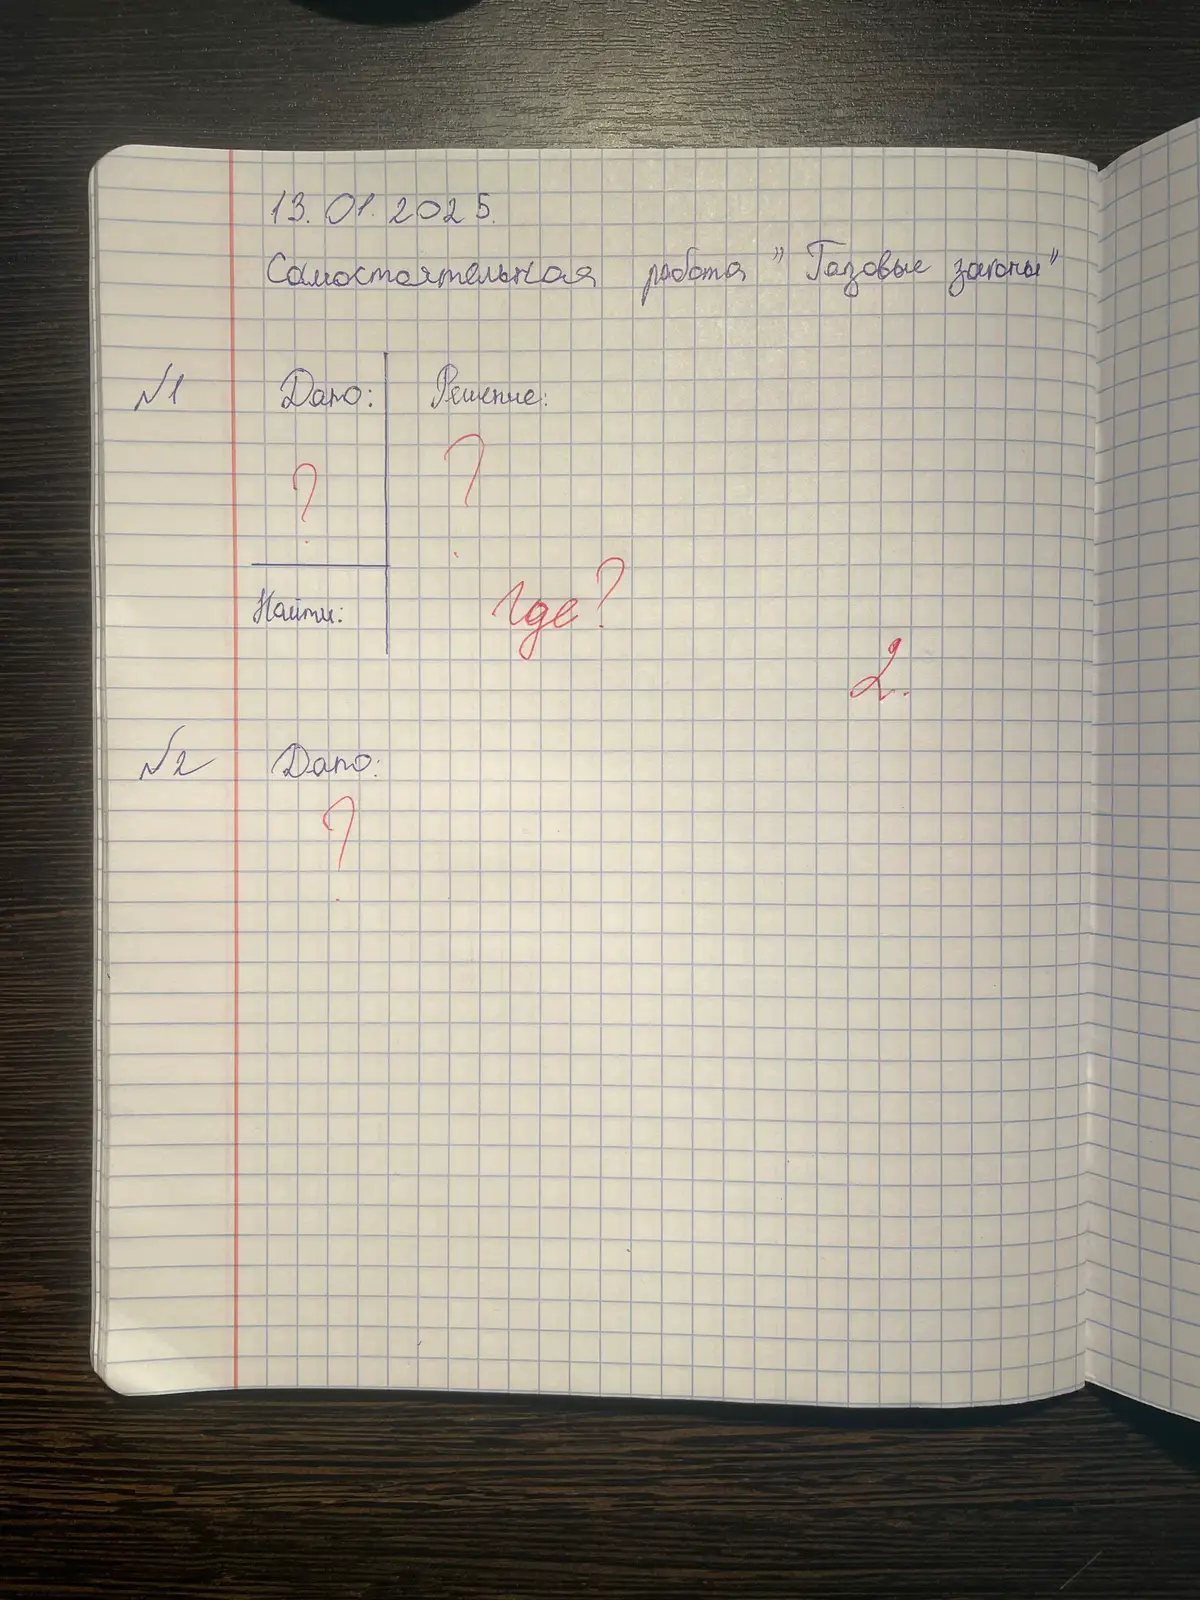 13.01.2025.
Самостоятельная работа "Газовые законы"
№1 Дано: Решение:
? ?
Найти: где?
2.
№2 Дано:
?